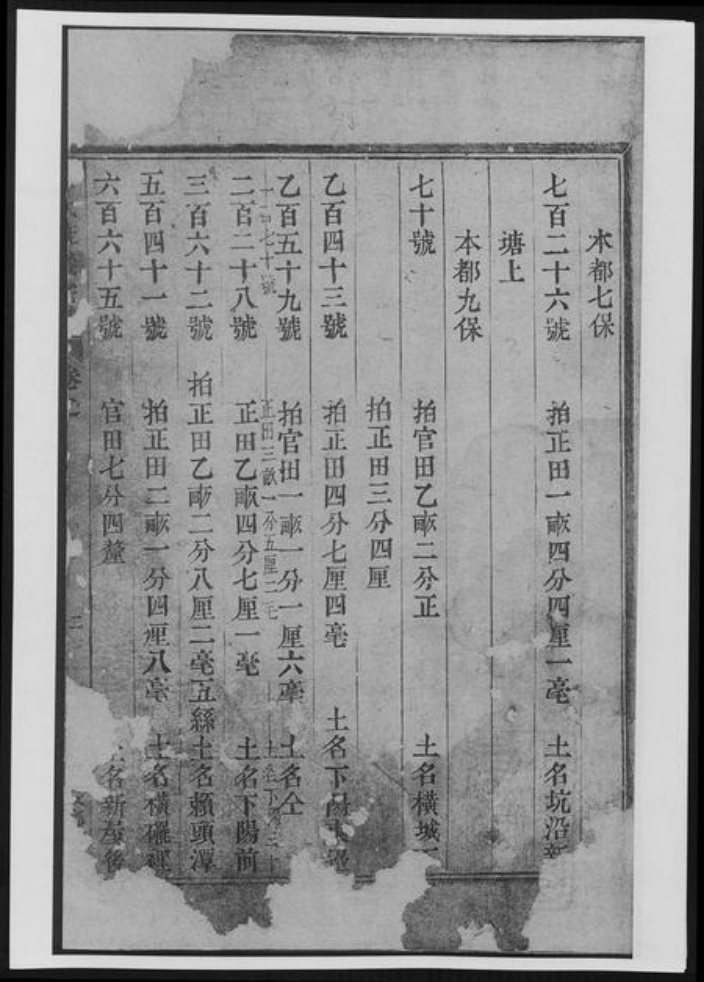 本都七保
七百二十六號 拍正田一畝四分四厘一毫 土名坑沿新
塘上
本都九保
七十號 拍官田乙畝二分正 土名橫城
拍正田三分四厘
乙百四十三號 拍正田四分七厘四毫 土名下陽
乙百五十九號 拍官田一畝一分一厘六毫 土名仝
七十號 正田三畝一分五厘二毛 土名下
二百二十八號 正田乙畝四分七厘一毫 土名下陽前
三百六十二號 拍正田乙畝二分八厘二毫五絲 土名賴頭潭
五百四十一號 拍正田二畝一分四厘八毫 土名橫
六百六十五號 官田七分四釐 土名新 後
卷
二